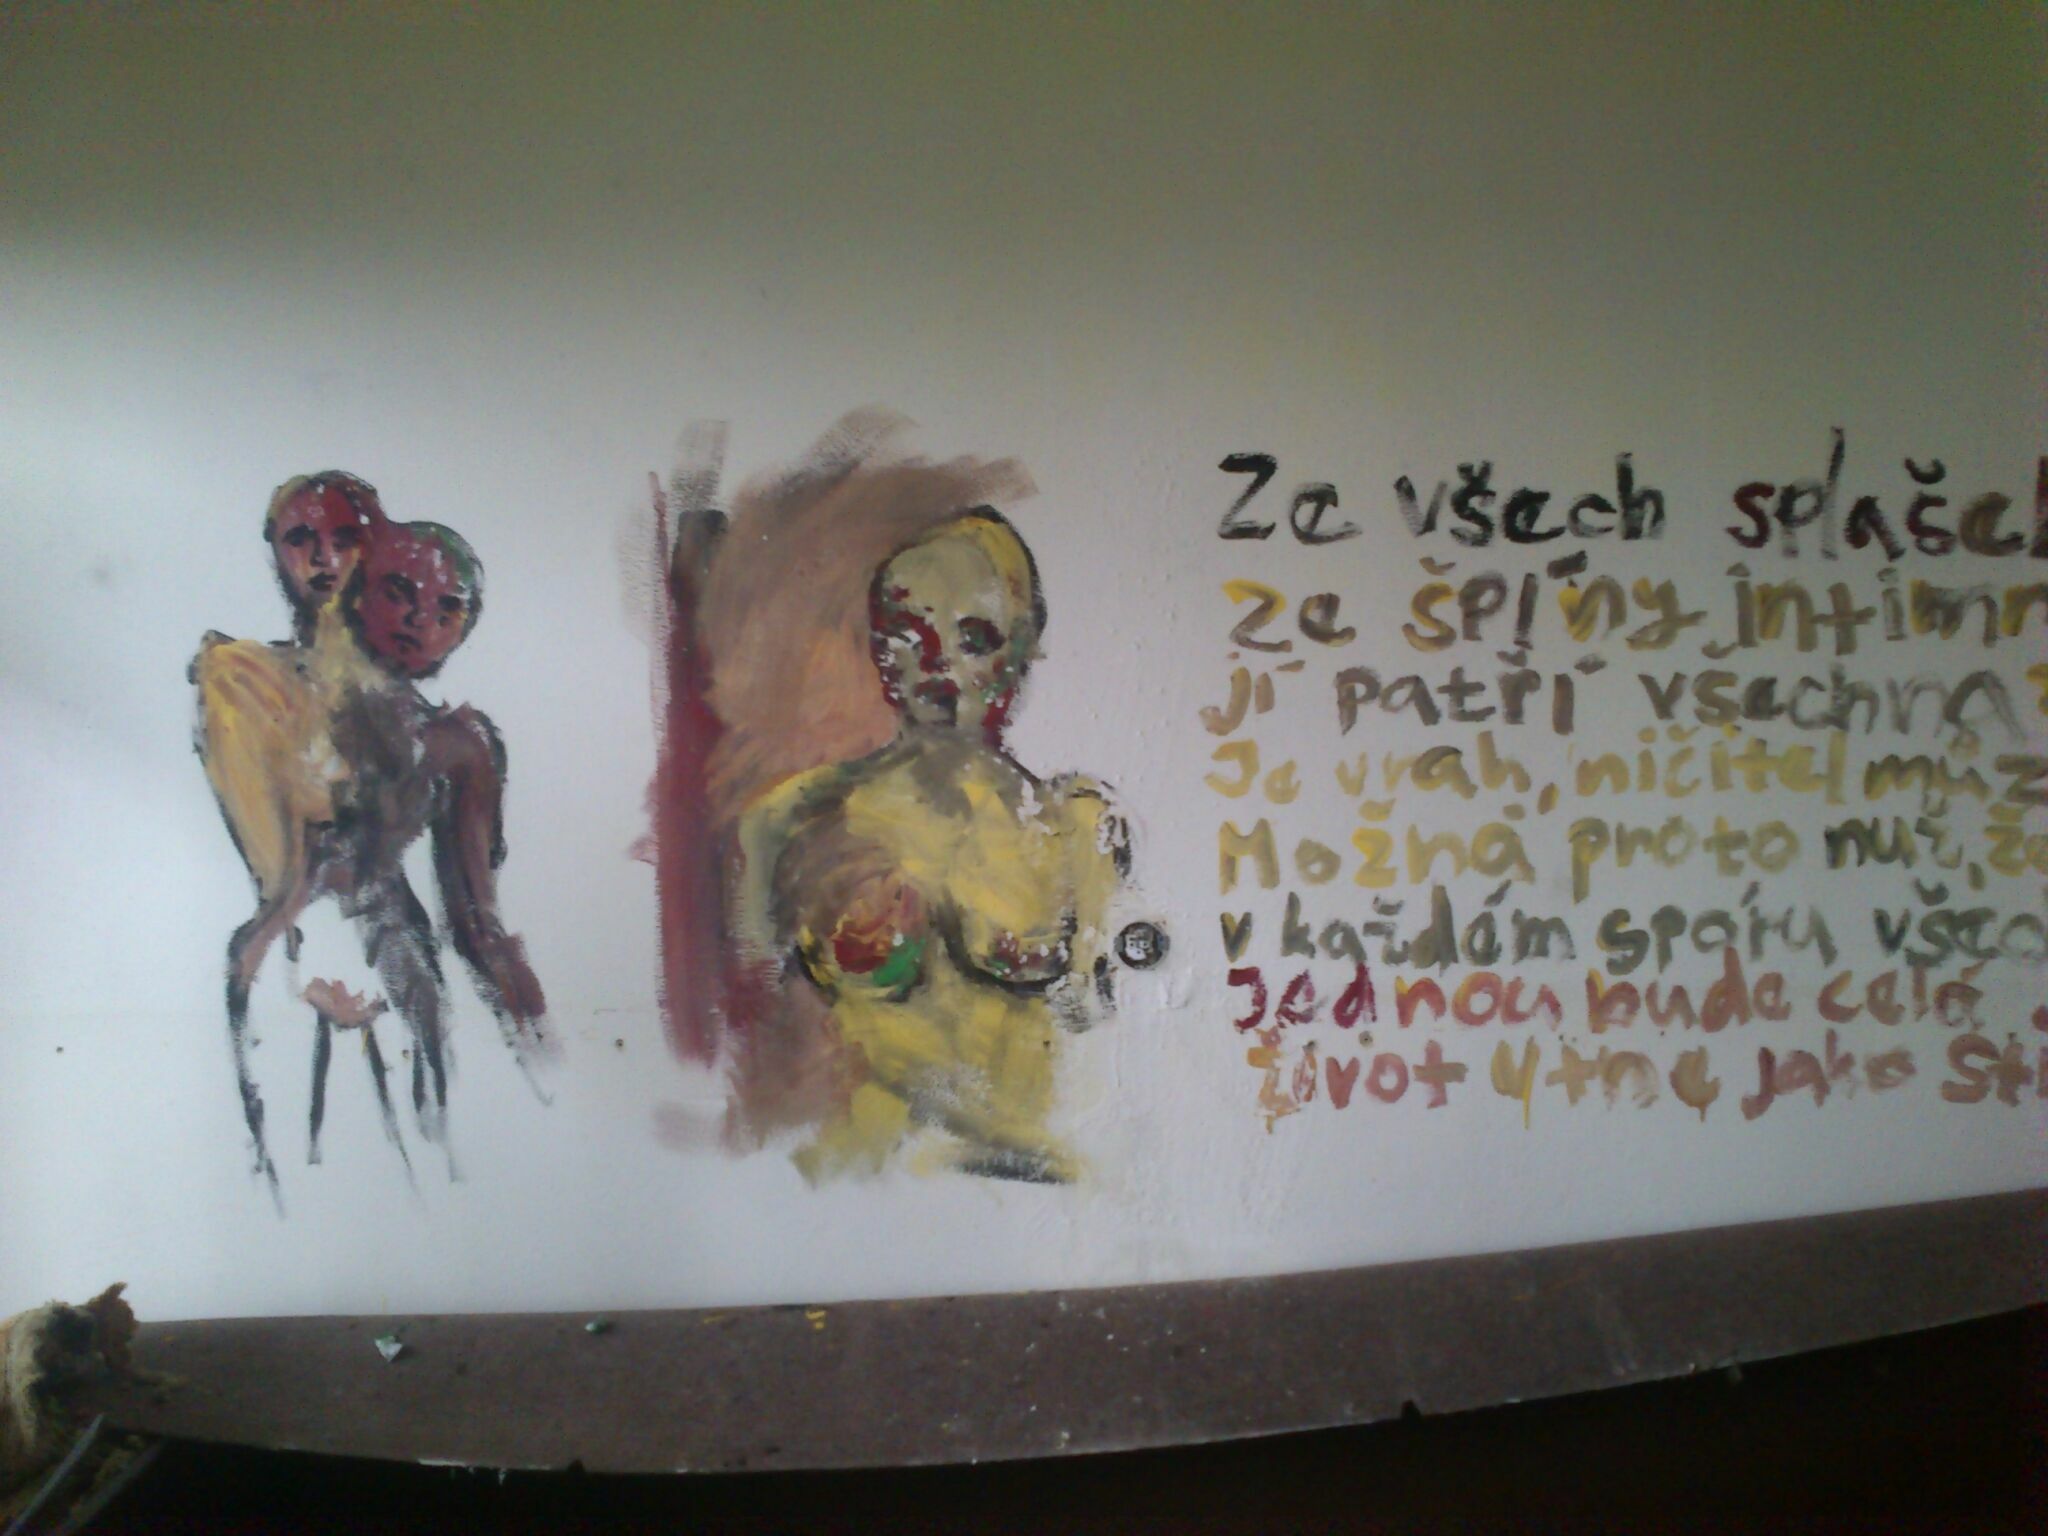 Ze všech splaše
ze špíny intimn
jí patří všechna
Je vrah, ničitel můz
Možná proto nuž, že
v každém spáru všec
Jednou bude celá
život utne jako st